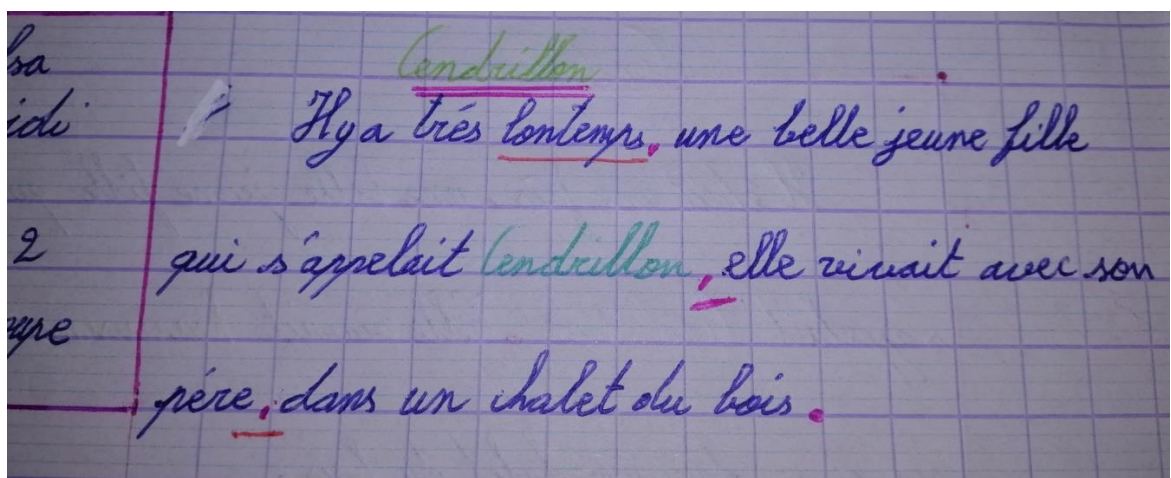 Cendrillon
Il y a trés lontemps, une belle jeune fille
qui s'appelait Cendrillon, elle vivait avec son
pére, dans un chalet du bois.
sa
idi
2
upe